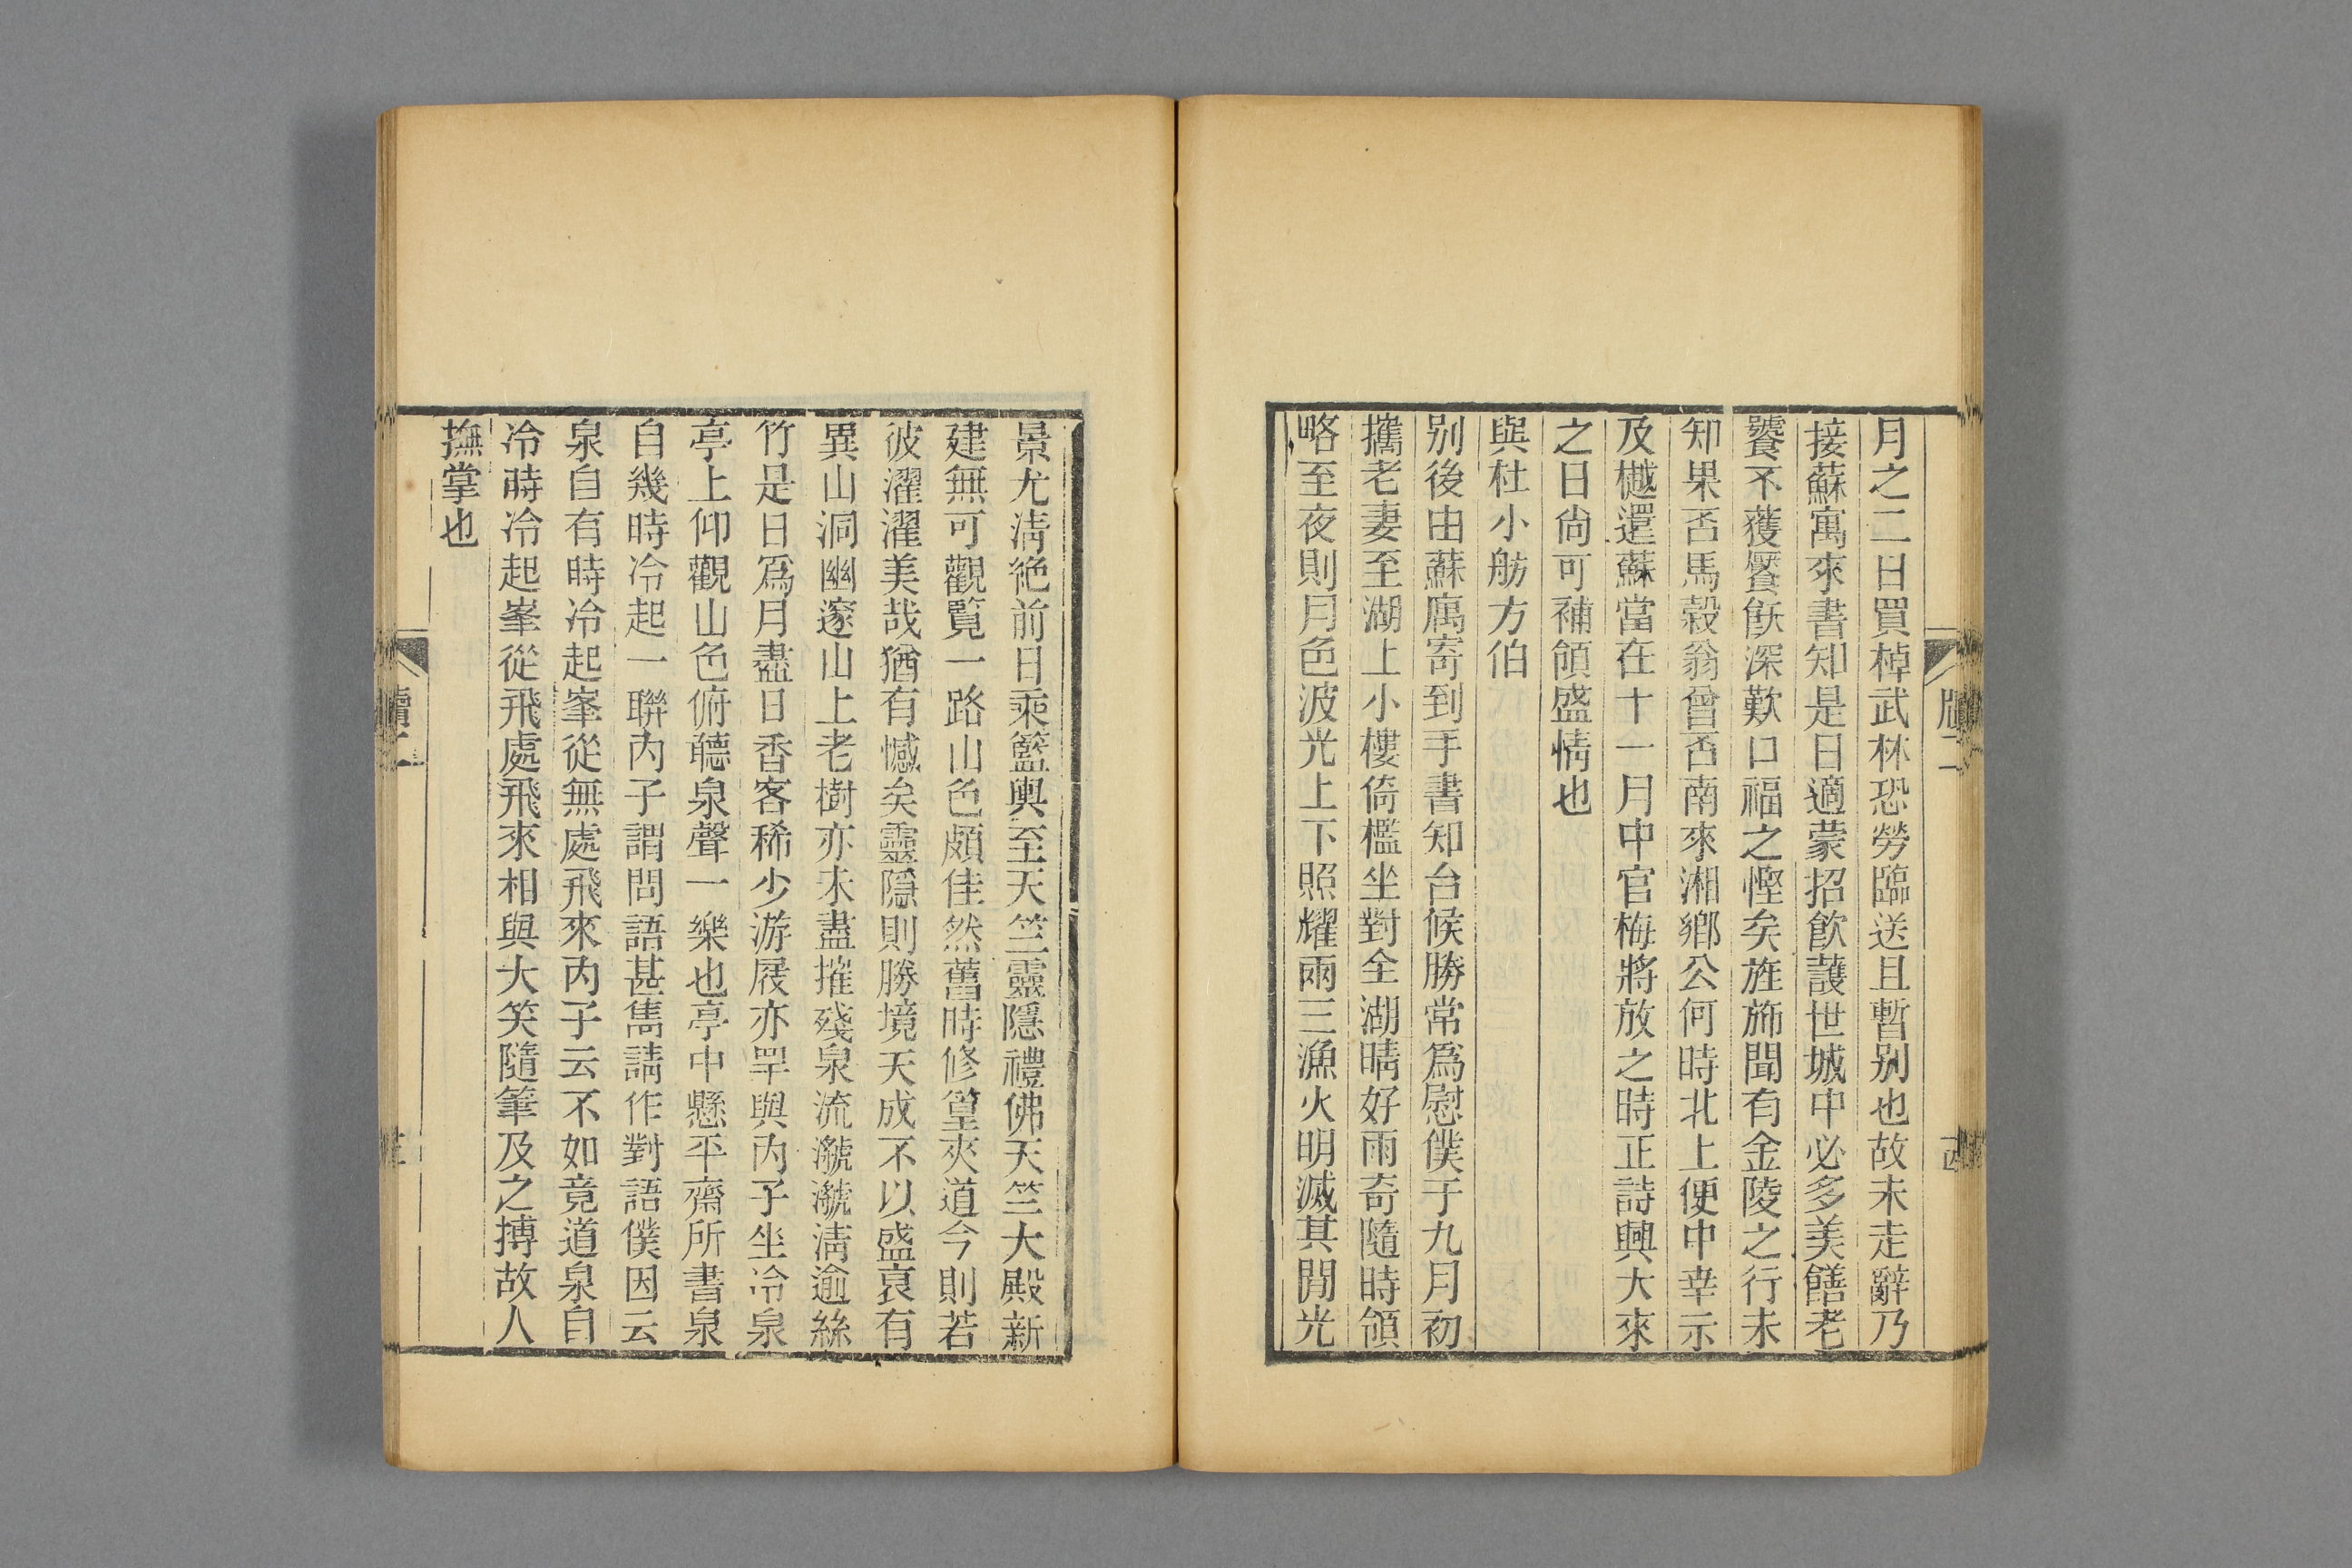 月之二日買棹武林恐勞臨送且暫别也故未走辭乃
接蘇寓來書知是日適蒙招飲護世城中必多美饍老
饕不獲饜飫深歎口福之慳矣旌斾聞有金陵之行未
知果否馬榖翁曾否南來湘鄉公何時北上便中幸示
及樾還蘇當在十一月中官梅將放之時正詩興大來
之日尙可補領盛情也
與杜小舫方伯
别後由蘇寓寄到手書知台候勝常爲慰僕于九月初
攜老妻至湖上小樓倚檻坐對全湖晴好雨奇隨時領
略至夜則月色波光上下照耀兩三漁火明滅其閒光
景尤淸絶前日乘籃輿至天竺靈隱禮佛天竺大殿新
建無可觀覧一路山色頗佳然舊時修篁夾道今則若
彼濯濯美哉猶有憾矣靈隱則勝境天成不以盛衰有
異山洞幽邃山上老樹亦未盡摧殘泉流㶁㶁淸逾絲
竹是日爲月盡日香客稀少游屐亦罕與內子坐冷泉
亭上仰觀山色俯聽泉聲一樂也亭中懸平齋所書泉
自幾時冷起一聯內子謂問語甚雋請作對語僕因云
泉自有時冷起峯從無處飛來內子云不如竟道泉自
冷時冷起峯從飛處飛來相與大笑隨筆及之搏故人
撫掌也
牘二